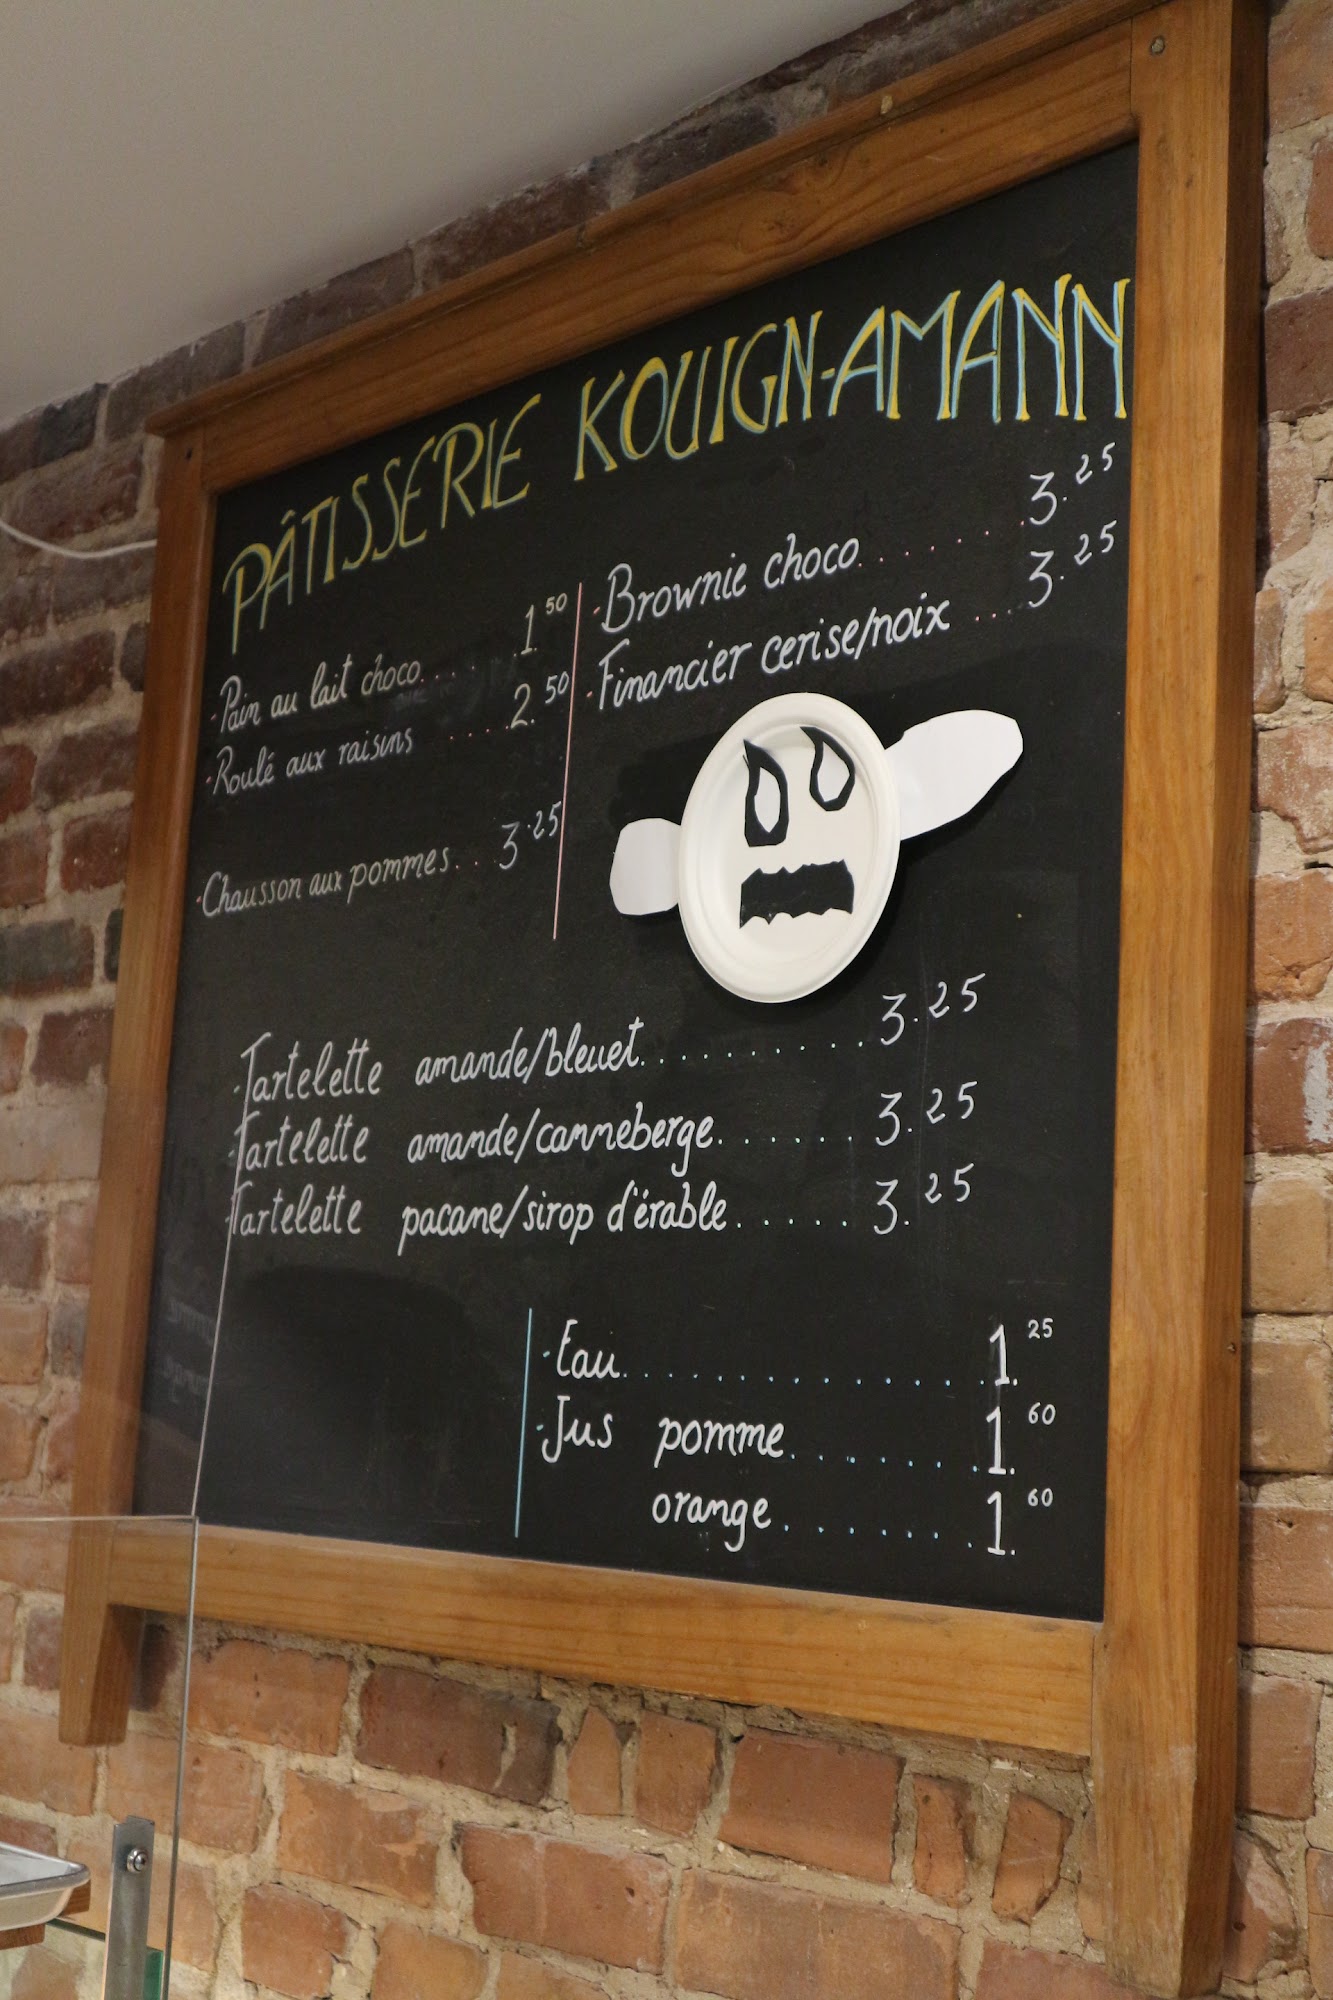 PÂTISSERIE KOUIGN-AMANN
-Pain au lait choco.......1.50
-Roulé aux raisins ......2.50
-Chausson aux pommes...3.25
-Brownie choco.......3.25
-Financier cerise/noix ....3.25
-Tartelette amande/bleuet..........3.25
-Tartelette amande/canneberge.......3.25
-Tartelette pacane/sirop d'érable.......3.25
-Eau..............1.25
-Jus pomme........1.60
orange........1.60